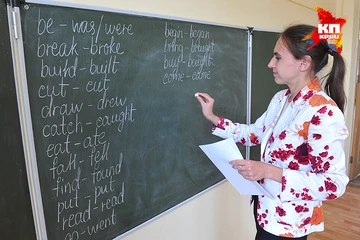 be - was/were
break - broke
build - built
cut - cut
draw - drew
catch - caught
eat - ate
fall - fell
find - found
put - put
read - read
go - went
begin - began
bring - brought
buy - bought
come - came
КП
КРЫМ